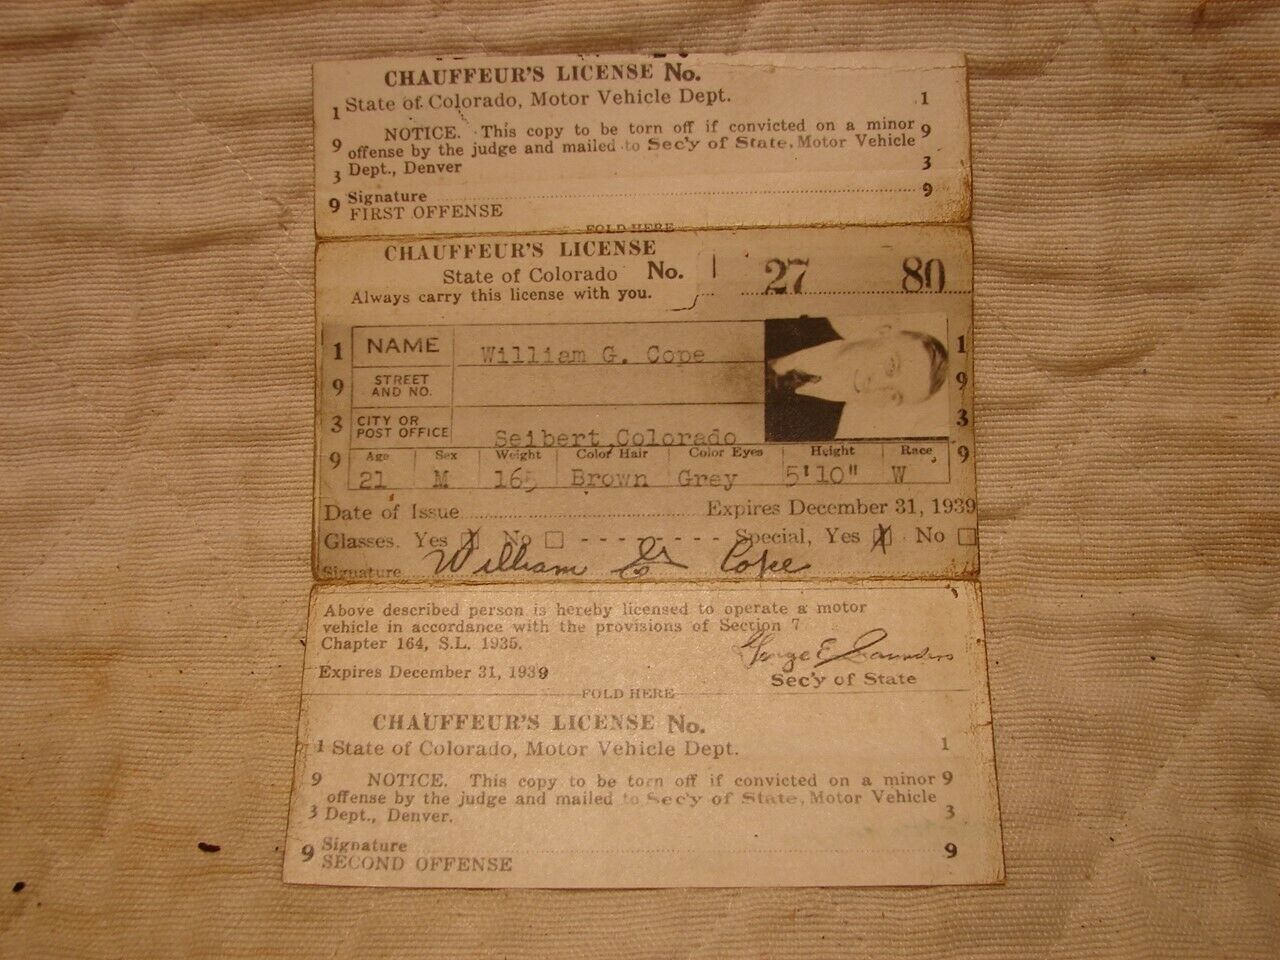 CHAUFFEUR'S LICENSE No.
1 State of Colorado, Motor Vehicle Dept. 1
9 NOTICE. This copy to be torn off if convicted on a minor 9
offense by the judge and mailed to Sec'y of State, Motor Vehicle
3 Dept., Denver 3
9 Signature 9
FIRST OFFENSE
FOLD HERE
CHAUFFEUR'S LICENSE
State of Colorado No. 27 80
Always carry this license with you.
1 NAME William G. Cope 1
9 STREET AND NO. 9
3 CITY OR POST OFFICE Seibert, Colorado 3
9 Age Sex Weight Color Hair Color Eyes Height Race 9
21 M 165 Brown Grey 5'10" W
Date of Issue Expires December 31, 1939
Glasses. Yes X No Special, Yes X No
Signature William G Cope
Above described person is hereby licensed to operate a motor
vehicle in accordance with the provisions of Section 7
Chapter 164, S.L. 1935.
George E Saunders
Expires December 31, 1939 Sec'y of State
FOLD HERE
CHAUFFEUR'S LICENSE No.
1 State of Colorado, Motor Vehicle Dept. 1
9 NOTICE. This copy to be torn off if convicted on a minor 9
offense by the judge and mailed to Sec'y of State, Motor Vehicle
3 Dept., Denver. 3
9 Signature 9
SECOND OFFENSE